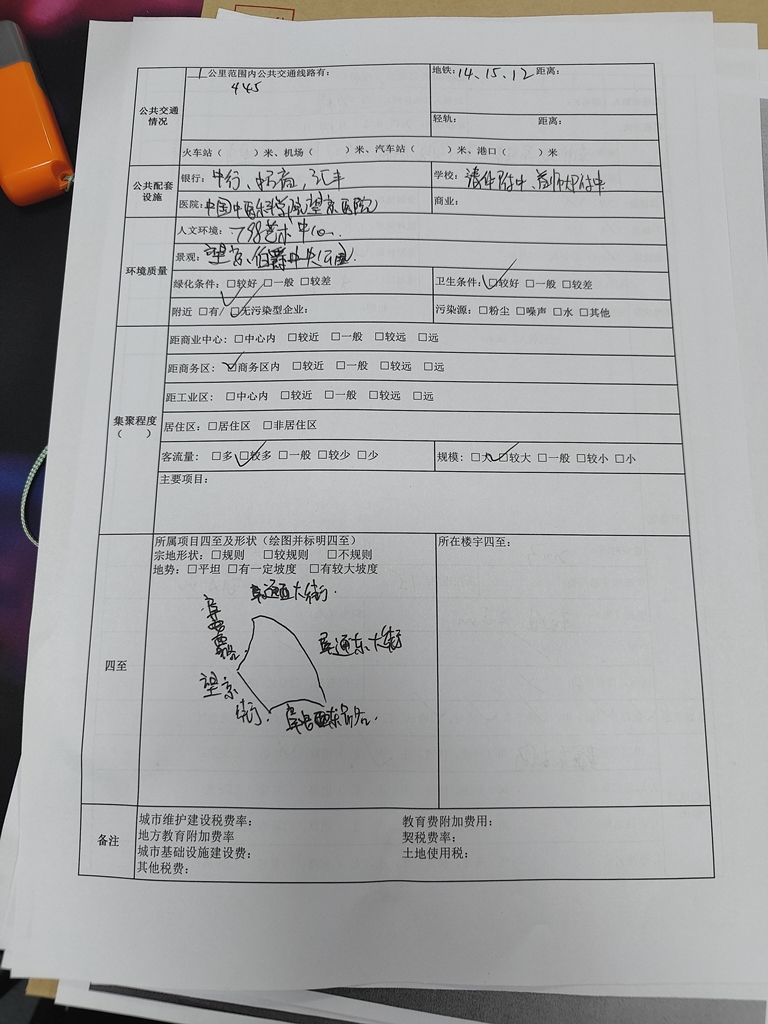 公共交通情况
1公里范围内公共交通线路有：
445
地铁：14、15、12 距离：
轻轨： 距离：
火车站（ ）米、机场（ ）米、汽车站（ ）米、港口（ ）米
公共配套设施
银行：中行、招商、汇丰
学校：清华附中、首师大附中
医院：中国中医科学院望京医院
商业：
环境质量
人文环境：798艺术中心
景观：望京、伯爵中央公园
绿化条件：□较好 □一般 □较差
卫生条件：□较好 □一般 □较差
附近 □有/ □无污染型企业：
污染源：□粉尘 □噪声 □水 □其他
集聚程度（ ）
距商业中心：□中心内 □较近 □一般 □较远 □远
距商务区：□商务区内 □较近 □一般 □较远 □远
距工业区：□中心内 □较近 □一般 □较远 □远
居住区：□居住区 □非居住区
客流量：□多 □较多 □一般 □较少 □少
规模：□大 □较大 □一般 □较小 □小
主要项目：
四至
所属项目四至及形状（绘图并标明四至）
宗地形状：□规则 □较规则 □不规则
地势：□平坦 □有一定坡度 □有较大坡度
所在楼宇四至：
阜通西大街
阜通东大街
望京
街
备注
城市维护建设税费率：
教育费附加费用：
地方教育附加费率
契税费率：
城市基础设施建设费：
土地使用税：
其他税费：